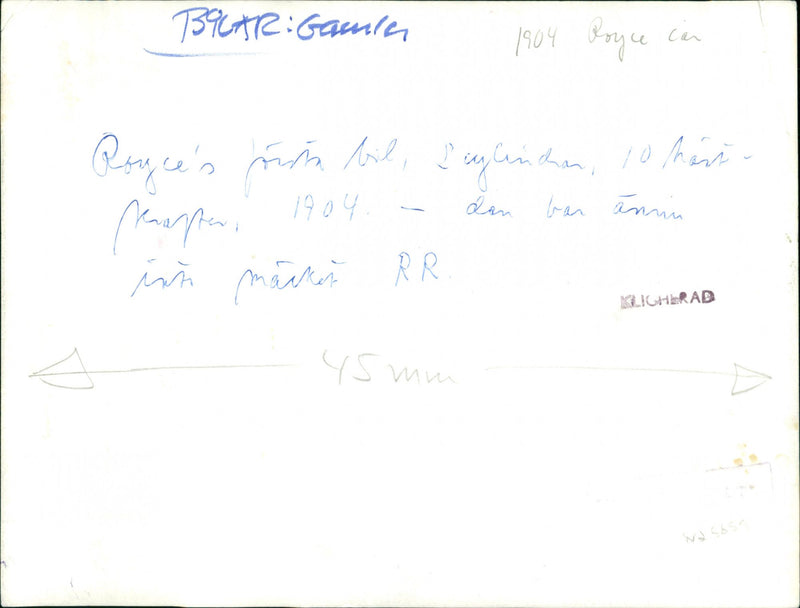 BILAR: Gamla
1904 Royce car
Royce's första bil, 2 cylindrar, 10 häst-
krafter, 1904. — den bar ännu
inte märket RR.
KLICHERAD
45 mm